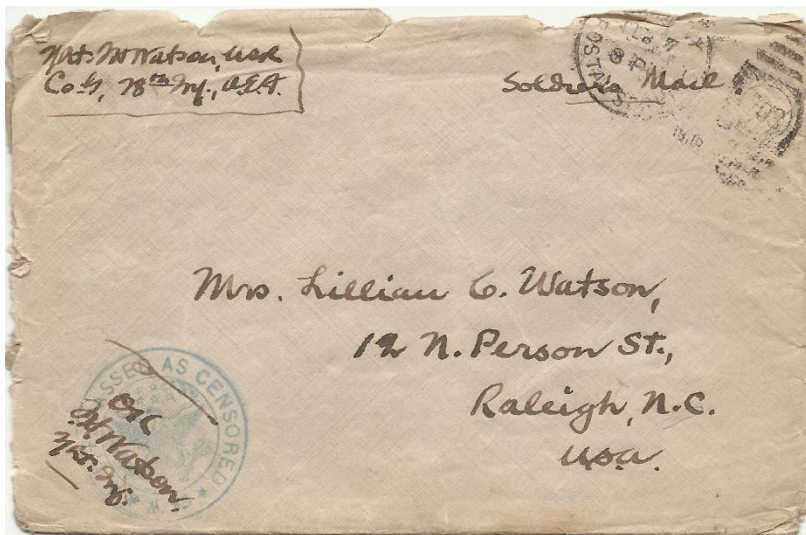 M Watson, USR
Co. G, 28th Inf., A.E.F.
Soldier's Mail
FEB 7
8 PM
POSTAL
Mrs. Lillian C. Watson,
12 N. Person St.,
Raleigh, N.C.
USA.
PASSED AS CENSORED
OK
M Watson
Inf.